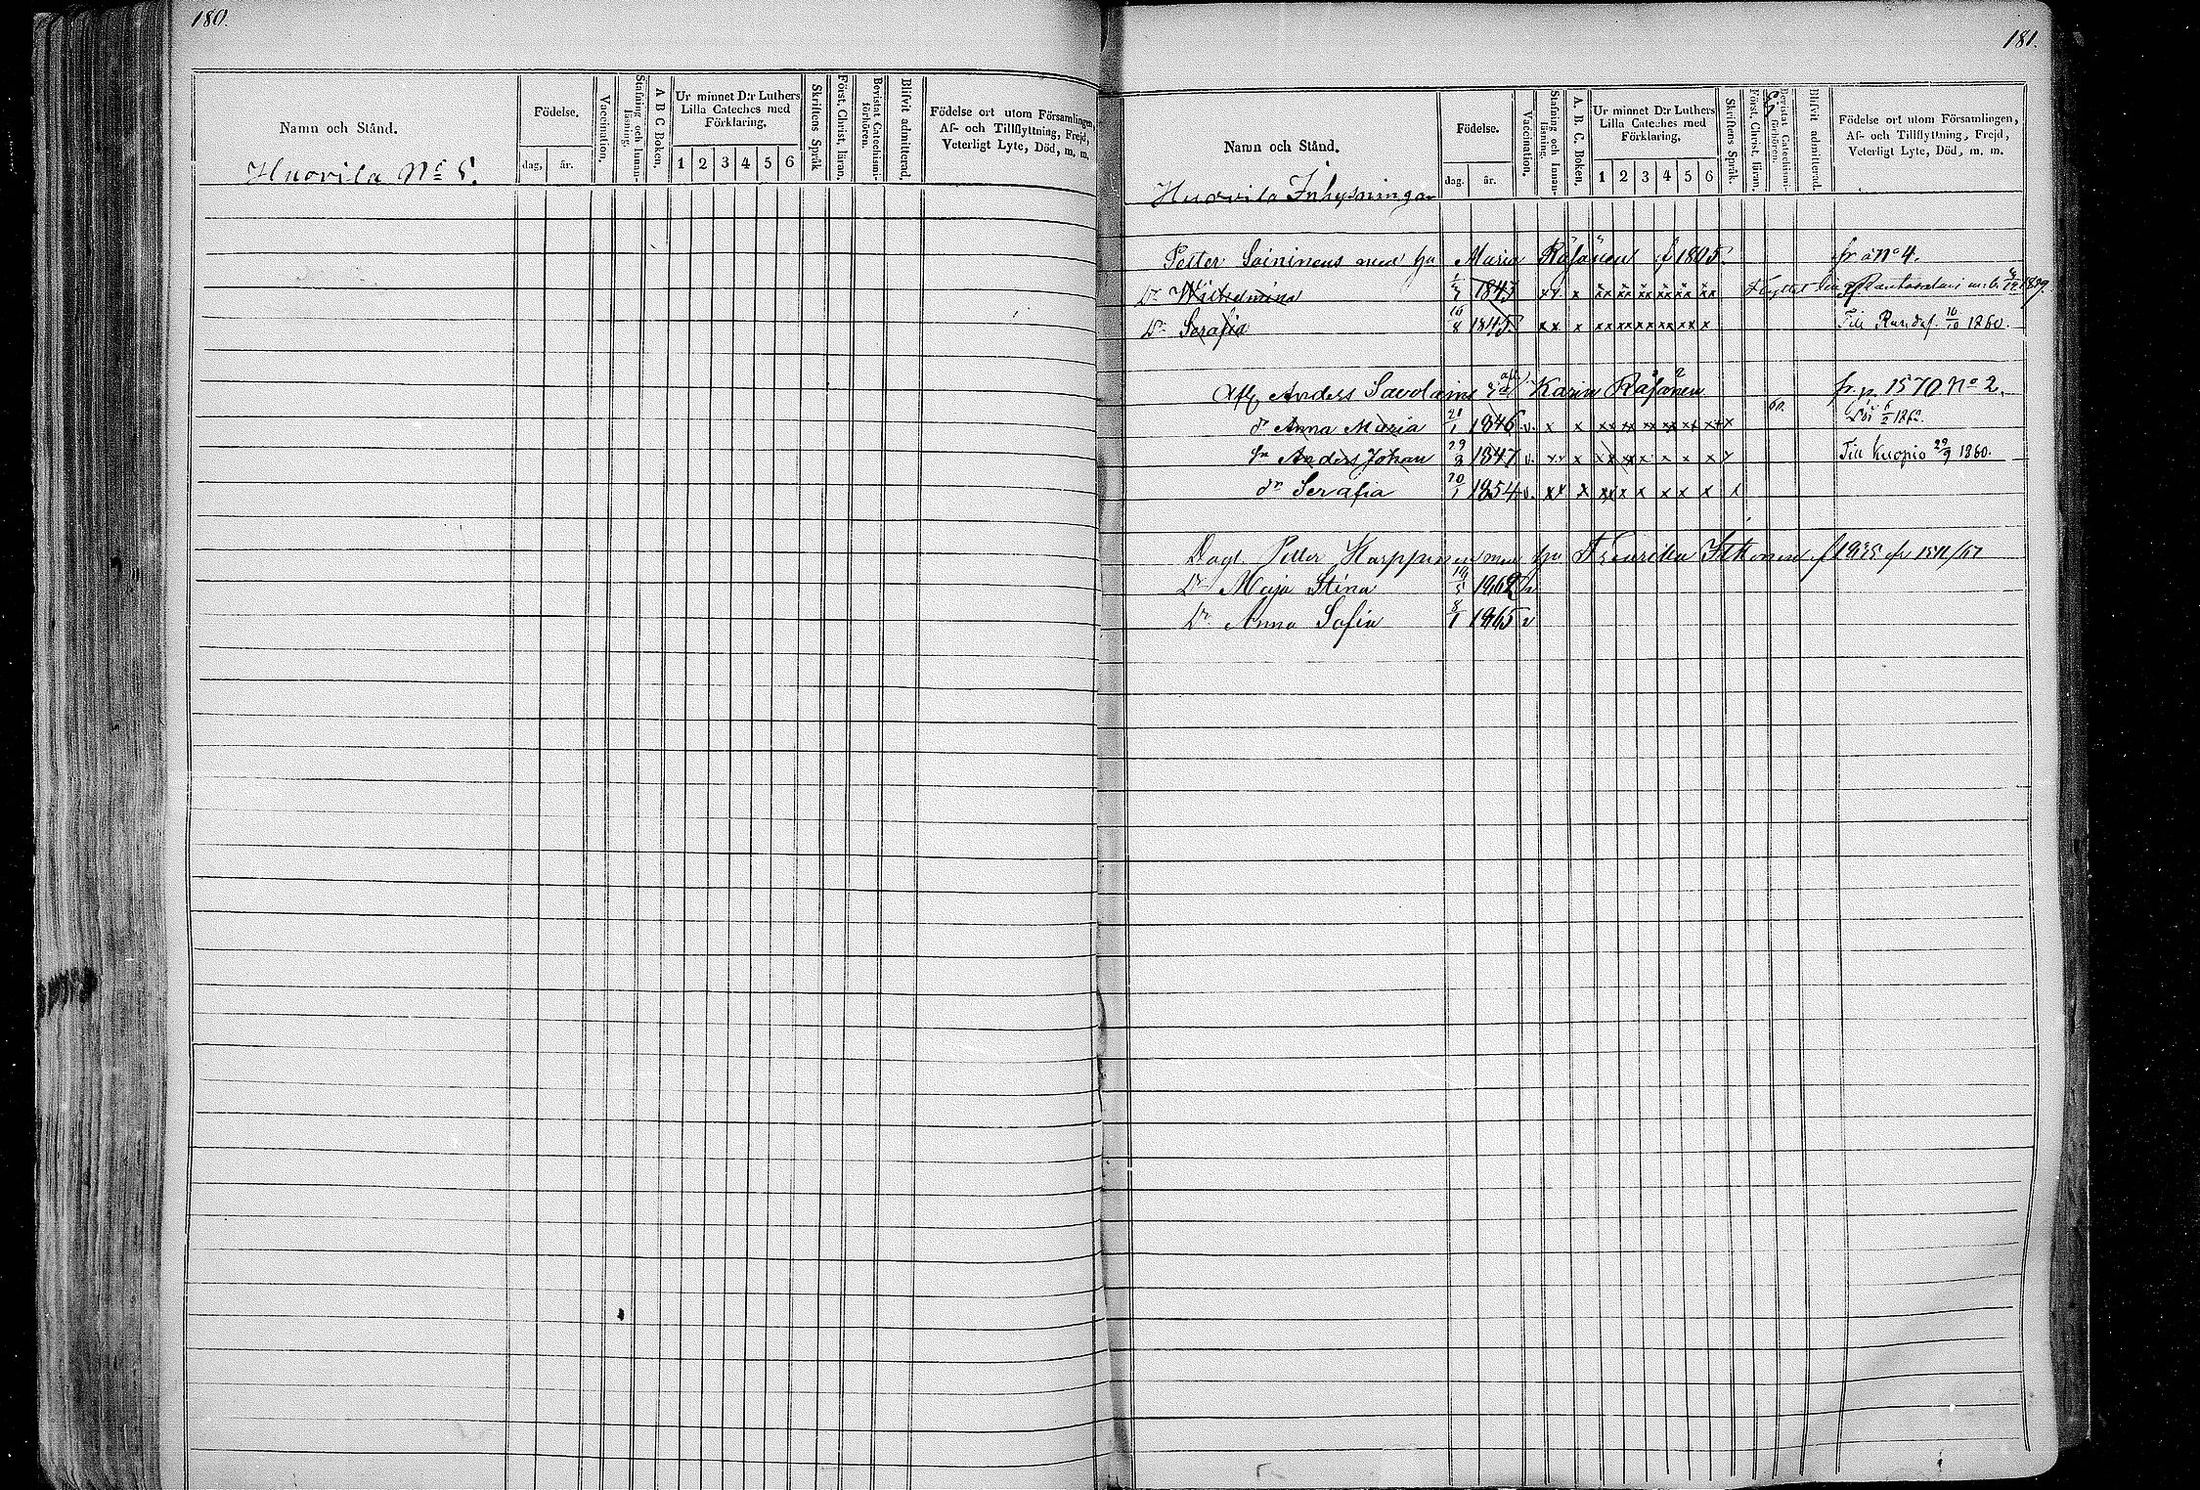 180.
Namn och Stånd.
Födelse.
dag.
år.
Vaccination.
Stafning och Innan-läsning.
A B C Boken.
Ur minnet D:r Luthers
Lilla Cateches med
Förklaring.
1 2 3 4 5 6
Skriftens Språk
Först. Christ. läran.
Bevistat Catechismi-förhören.
Blifvit admitterad.
Födelse ort utom Församlingen,
Af- och Tillflyttning, Frejd,
Veterligt Lyte, Död, m. m.
Huovila No 5.
181.
Namn och Stånd.
Födelse.
dag.
år.
Vaccination.
Stafning och Innan-läsning.
A. B. C. Boken.
Ur minnet D:r Luthers
Lilla Cateches med
Förklaring.
1 2 3 4 5 6
Skriftens Språk.
Först. Christ. läran.
Bevistat Catechismi-förhören.
Blifvit admitterad.
Födelse ort utom Församlingen,
Af- och Tillflyttning, Frejd,
Veterligt Lyte, Död, m. m.
Huovila Inhysningar
Petter Soininens med hu Maria Räsänen f 1805. fr å No 4.
Dr Wilhelmina 1/7 1843 xx x xx xx xx xx xx xx Flyttat 1859.
Dr Serafia 16/8 1845 xx x xx xx xx xx xx x Till Rand 16/10 1860.
Afl. Anders Savolains Karin Räsänen fr. p. 1570 No 2.
dr Anna Maria 21/1 1846 v. x x xx xx xx xx xx xx x 60. Död 5/2 1862.
sn Anders Johan 29/8 1847 v. xx x xx xx x x x x x Till Kuopio 29/9 1860.
dr Serafia 20/1 1854 v. xx x xx x x x x x x
Dagk. Petter Karppinen med hu Fredrika Itkonen f 1835 fr 1511/67
Dr Maja Stina 19/5 1862 v
Dr Anna Sofia 8/1 1865 v